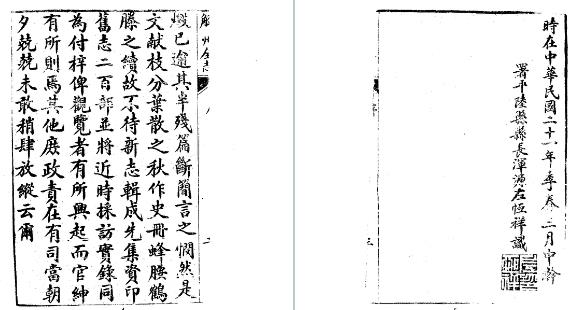 燬已逾其半殘篇斷簡言之憫然是
文献枝分葉散之秋作史冊蜂腰鶴
膝之續故不待新志輯成先集資印
舊志二百部並將近時採訪實錄同
為付梓俾觀覽者有所興起而官紳
有所則焉其他庶政責在有司當朝
夕兢兢未敢稍肆放縱云爾
時在中華民國二十一年季春三月中幹
署平陸縣縣長渾源左恆祥識